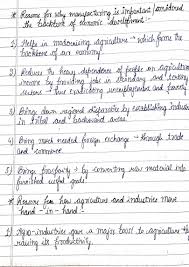 * Reasons for why manufacturing is important / considered
the backbone of economic development :-
1) Helps in modernising agriculture → which forms the
backbone of an economy
2) Reduces the heavy dependence of people on agriculture
income by providing jobs in secondary and tertiary
sectors → thus eradicating unemployment and poverty
3) Brings down regional disparities by establishing industries
in tribal and backward areas.
4) Bring much needed foreign exchange → through trade
and commerce
5) Brings prosperity → by converting raw material into
furnished useful goods
* Reasons for how agriculture and industries move
hand - in - hand :-
1) Agro-industries gave a major boost to agriculture →
raising its productivity.